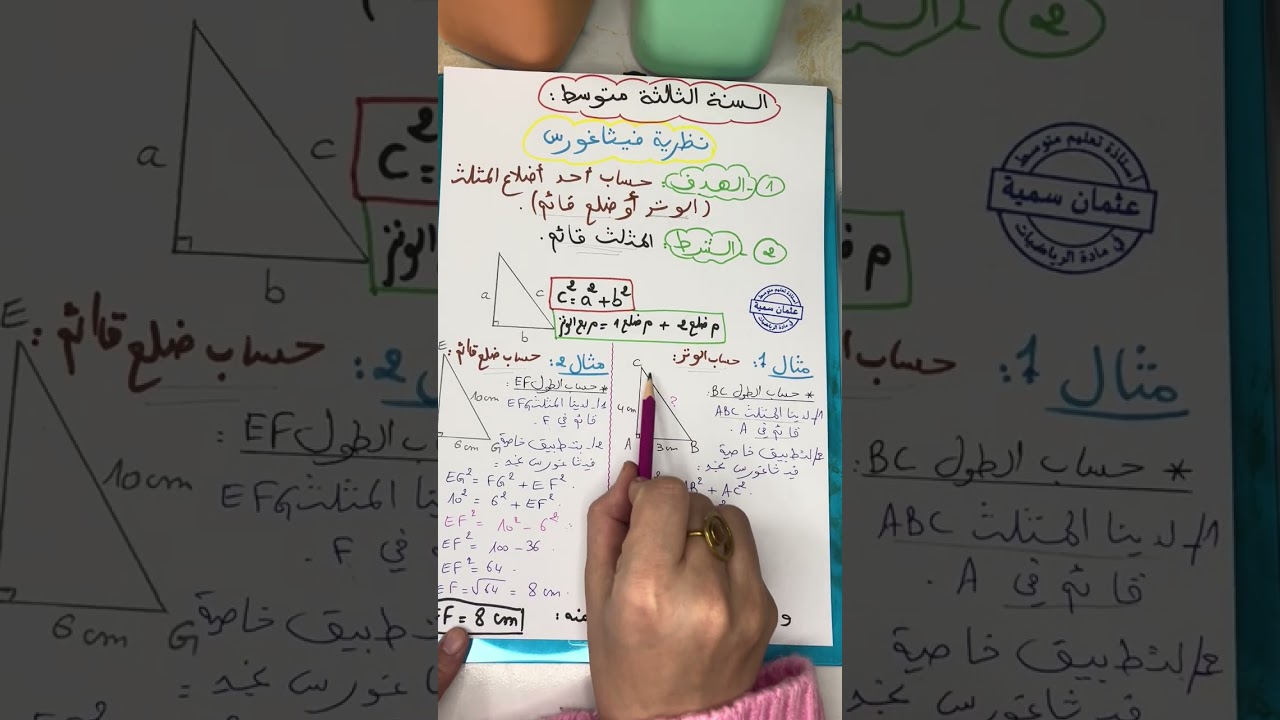 السنة الثالثة متوسط:
نظرية فيثاغورس
1 - الهدف: حساب أحد أضلاع المثلث
(الوتر أو ضلع قائم).
2 - الشرط: المثلث قائم.
a
c
b
c² = a² + b²
م ضلع 2 + م ضلع 1 = مربع الوتر
أستاذة تعليم متوسط
عثمان سمية
في مادة الرياضيات
مثال 1: حساب الوتر:
C
4 cm
?
A 3 cm B
* حساب الطول BC
1/ لدينا المثلث ABC
قائم في A
2/ بتطبيق خاصية
فيثاغورس نجد:
AB² + AC².
مثال 2: حساب ضلع قائم:
E
10 cm
6 cm G
* حساب الطول EF:
1/ لدينا المثلث EFG
قائم في F.
2/ بتطبيق خاصية
فيثاغورس نجد:
EG² = FG² + EF².
10² = 6² + EF².
EF² = 10² - 6²
EF² = 100 - 36.
EF² = 64.
EF = √64 = 8 cm
F = 8 cm